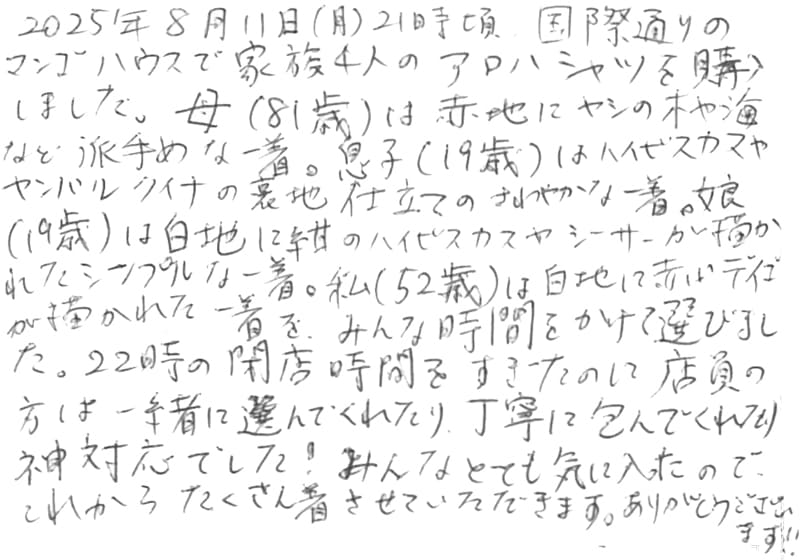 2025年8月11日(月)21時頃、国際通りの
マンゴハウスで家族4人のアロハシャツを購入
しました。母(81歳)は赤地にヤシの木や海
など派手めな一着。息子(19歳)はハイビスカスや
ヤンバルクイナの裏地仕立てのさわやかな一着。娘
(19歳)は白地に紺のハイビスカスやシーサーが描か
れたシンプルな一着。私(52歳)は白地に赤いデイゴ
が描かれた一着を、みんな時間をかけて選びまし
た。22時の閉店時間をすぎたのに店員の
方は一緒に選んでくれたり、丁寧に包んでくれたり
神対応でした!みんなとても気に入ったので、
これからたくさん着させていただきます。ありがとうござい
ます!!